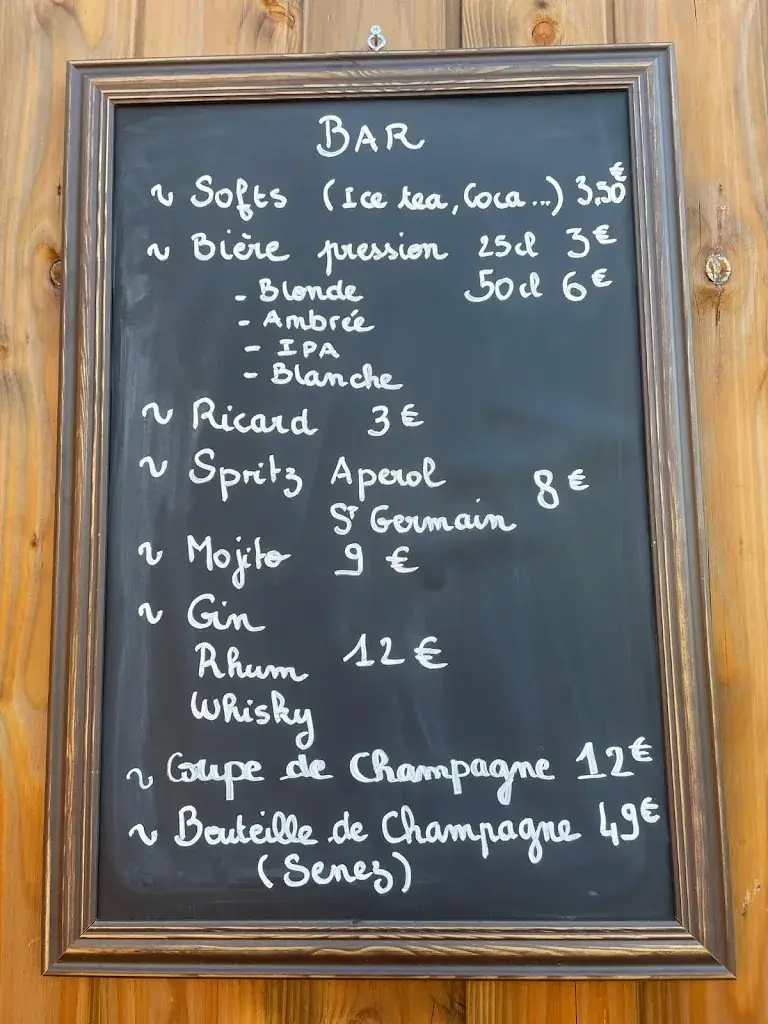 BAR
~ Softs (Ice tea, Coca...) 3,50€
~ Bière pression 25cl 3€
50cl 6€
- Blonde
- Ambrée
- IPA
- Blanche
~ Ricard 3€
~ Spritz Aperol 8€
St Germain
~ Mojito 9€
~ Gin
Rhum 12€
Whisky
~ Coupe de Champagne 12€
~ Bouteille de Champagne 49€
(Senez)